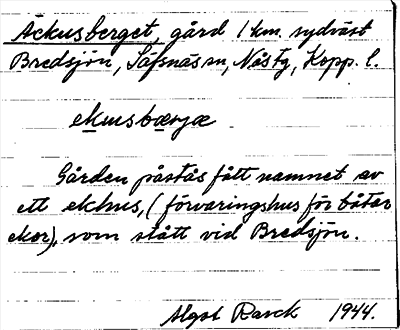 Ackusberget, gård 1 km. sydväst
Bredsjön, Säfsnäs sn, Näs tg, Kopp. l.
ekusbærjæ
Gården påstås fått namnet av
ett ekhus, (förvaringshus för båtar
ekor), som stått vid Bredsjön.
Algot Rarck 1944.